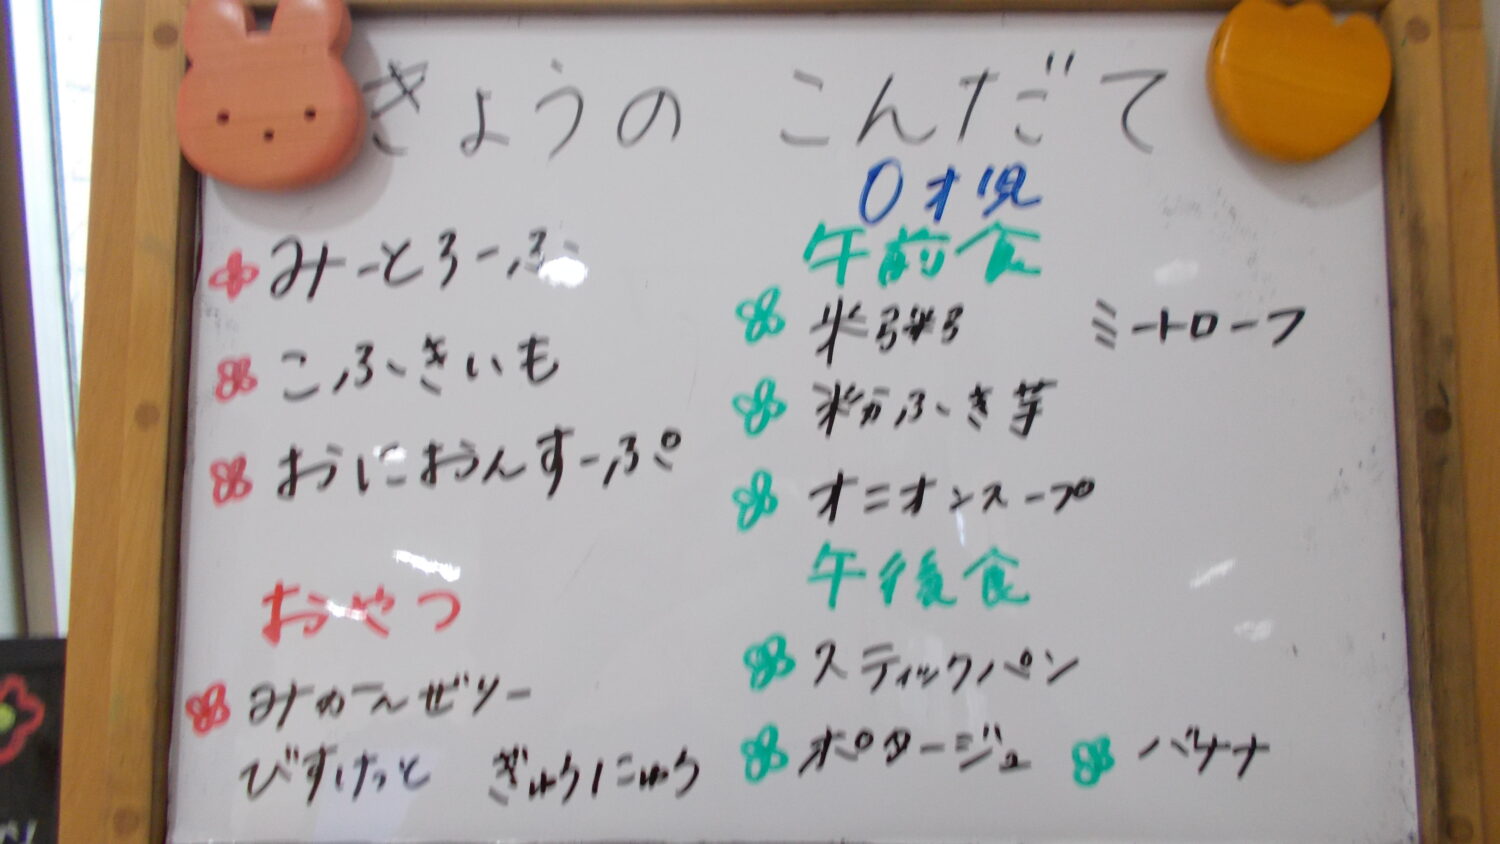 きょうの こんだて
みーとろーふ
こふきいも
おにおんすーぷ
おやつ
みかんぜりー
びすけっと ぎゅうにゅう
0才児
午前食
米粥 ミートローフ
粉ふき芋
オニオンスープ
午後食
スティックパン
ポタージュ バナナ